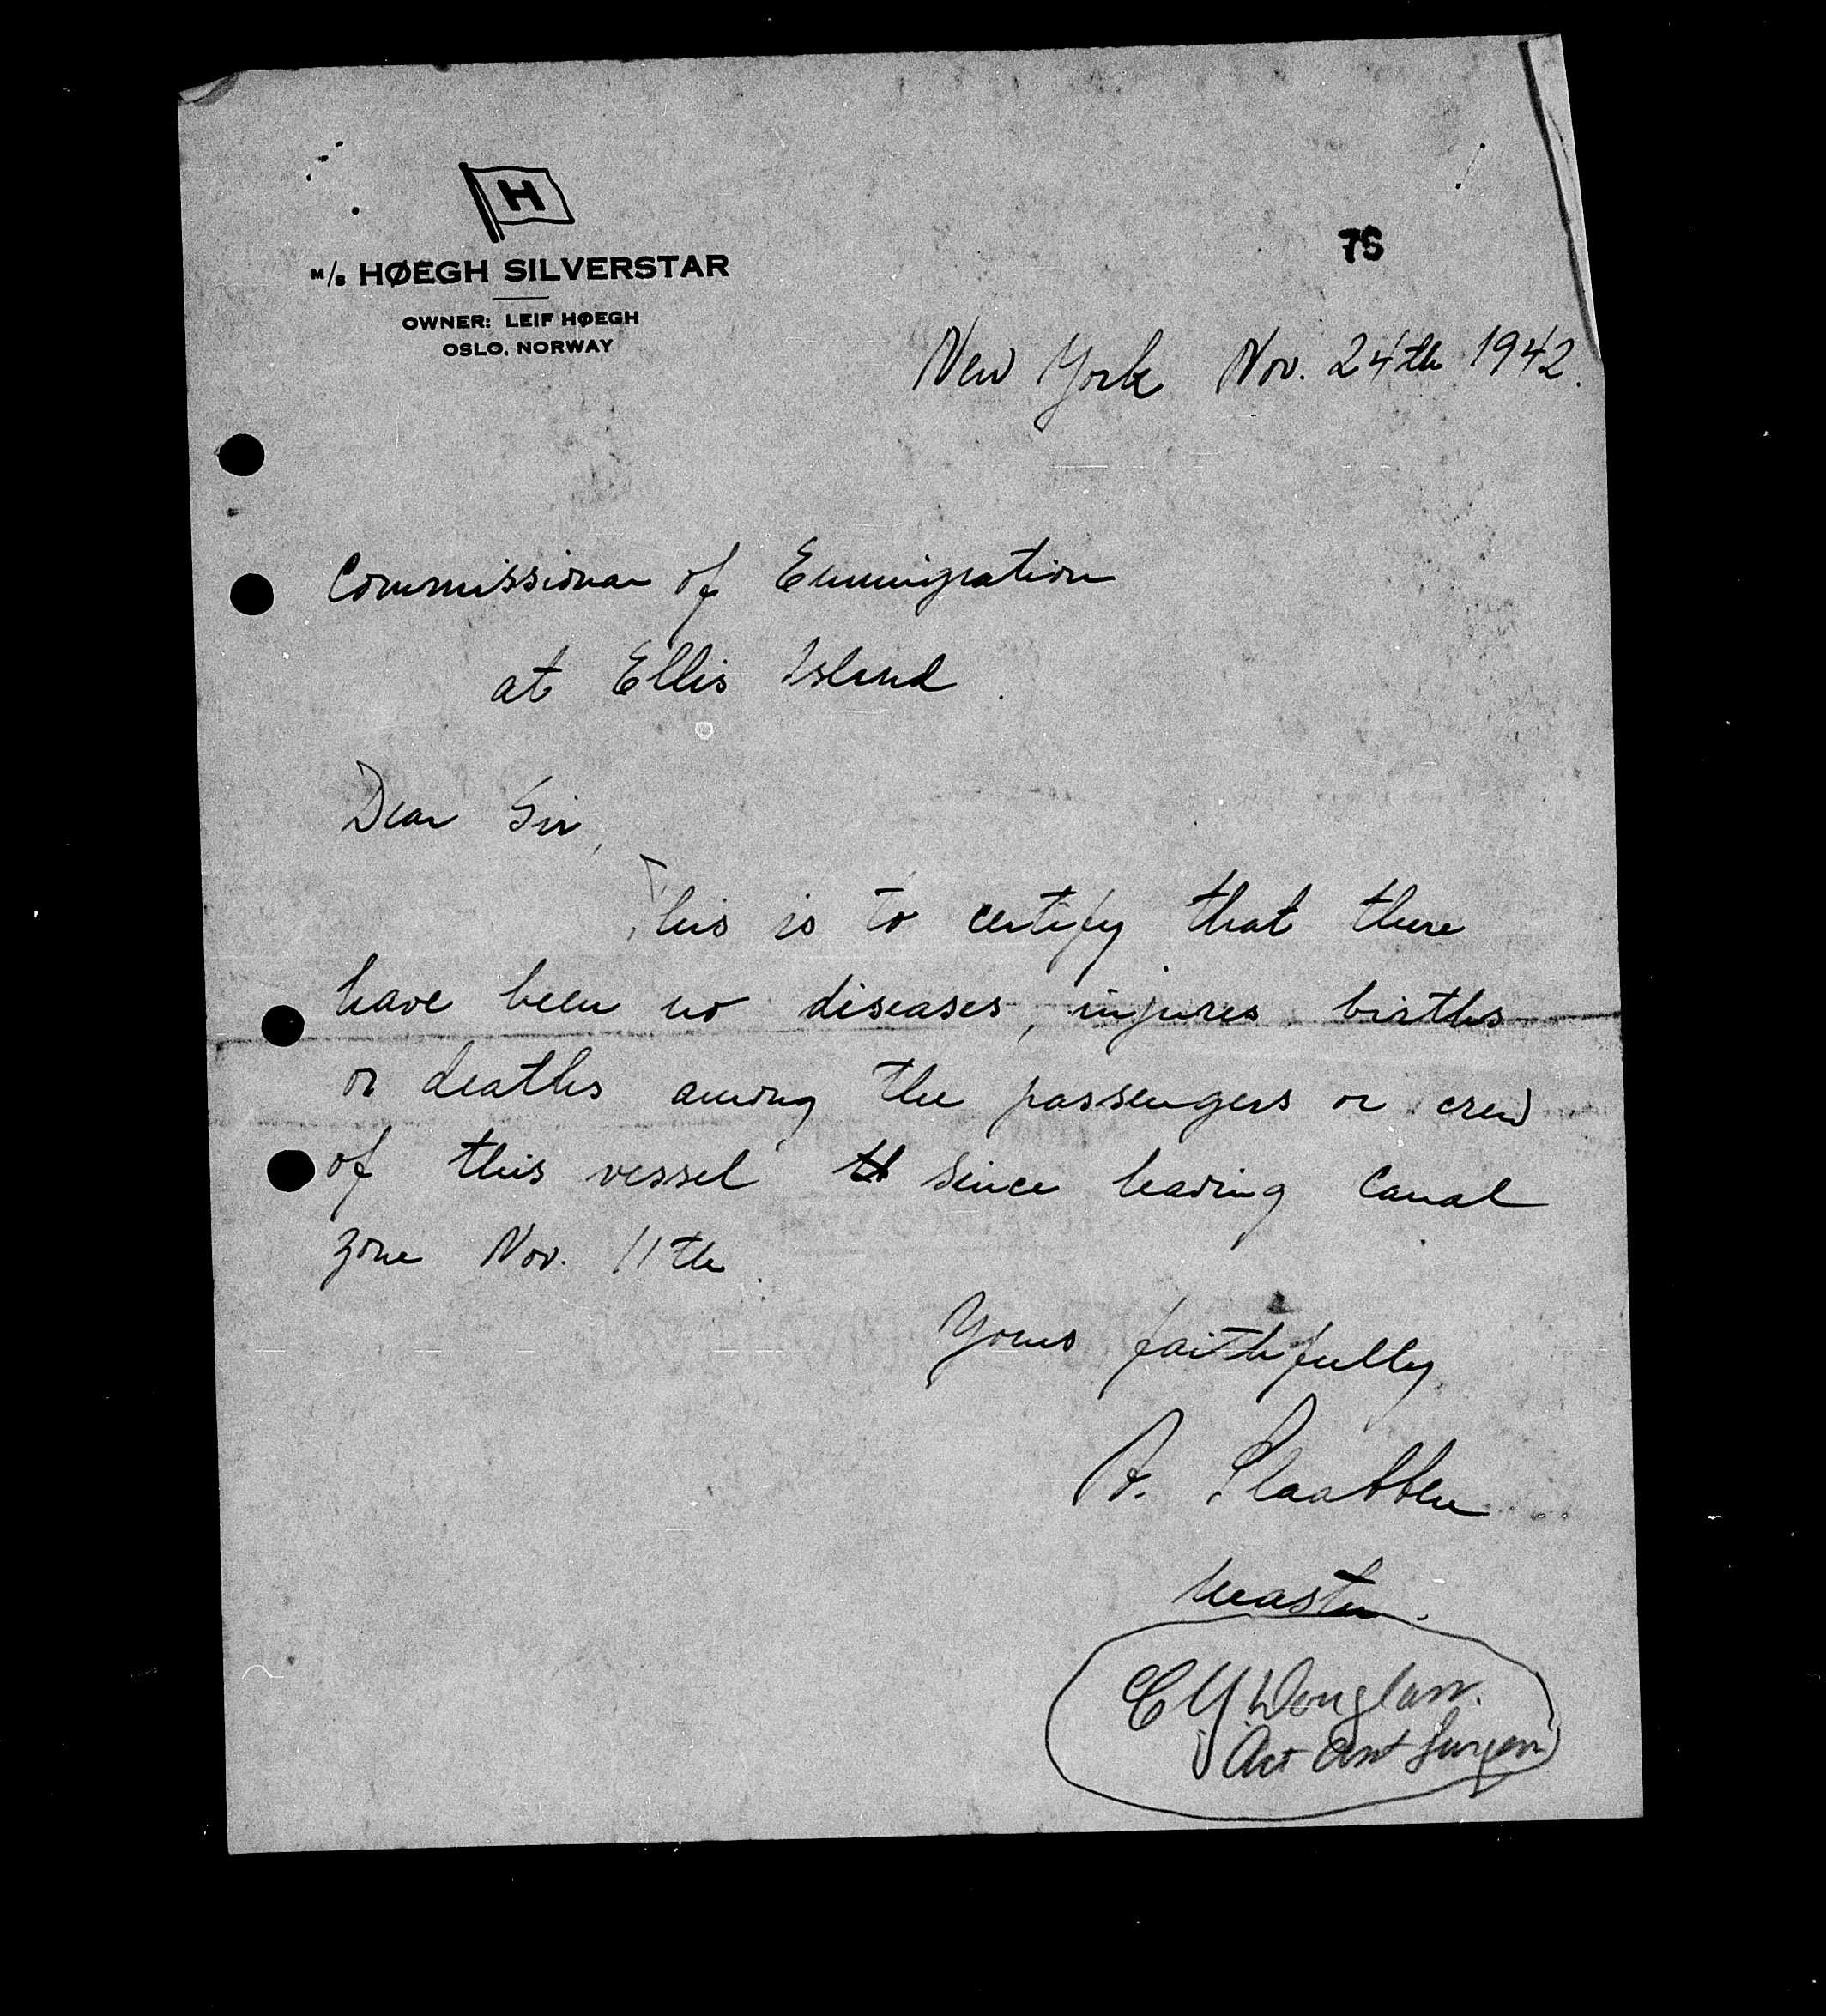 H
M/S HØEGH SILVERSTAR
OWNER: LEIF HØEGH
OSLO, NORWAY
76
New York Nov. 24th 1942.
Commissioner of Emmigration
at Ellis Island.
Dear Sir,
This is to certify that there
have been no diseases, injures births
or deaths among the passengers or crew
of this vessel since leaving Canal
zone Nov. 11th.
Yours faithfully
A. Slaatten
master.
C Y Douglass.
Act Asst Surgeon